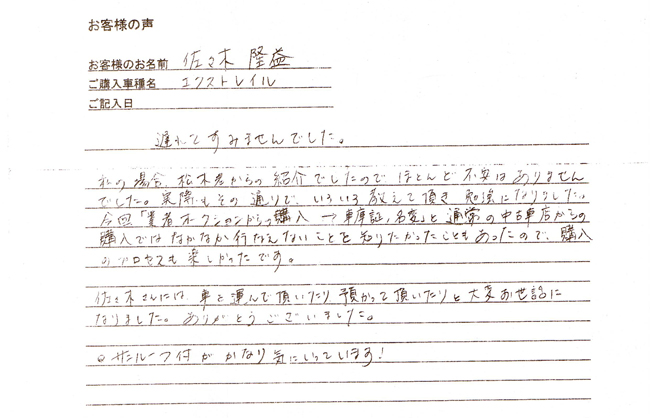 お客様の声
お客様のお名前 佐々木 隆益
ご購入車種名 エクストレイル
ご記入日
遅れてすみませんでした。
私の場合、松木君からの紹介でしたので ほとんど不安はありません
でした。実際もその通りで、いろいろ教えて頂き 勉強になりました。
今回「業者オークションからの購入 → 車庫証、名変」と通常の中古車店からの
購入ではなかなか行なえないことを知りたかったこともあったので、購入
のプロセスも楽しかったです。
佐々木さんには 車を運んで頂いたり 預かって頂いたりと大変お世話に
なりました。ありがとうございました。
○ サンルーフ付が かなり気にいっています!